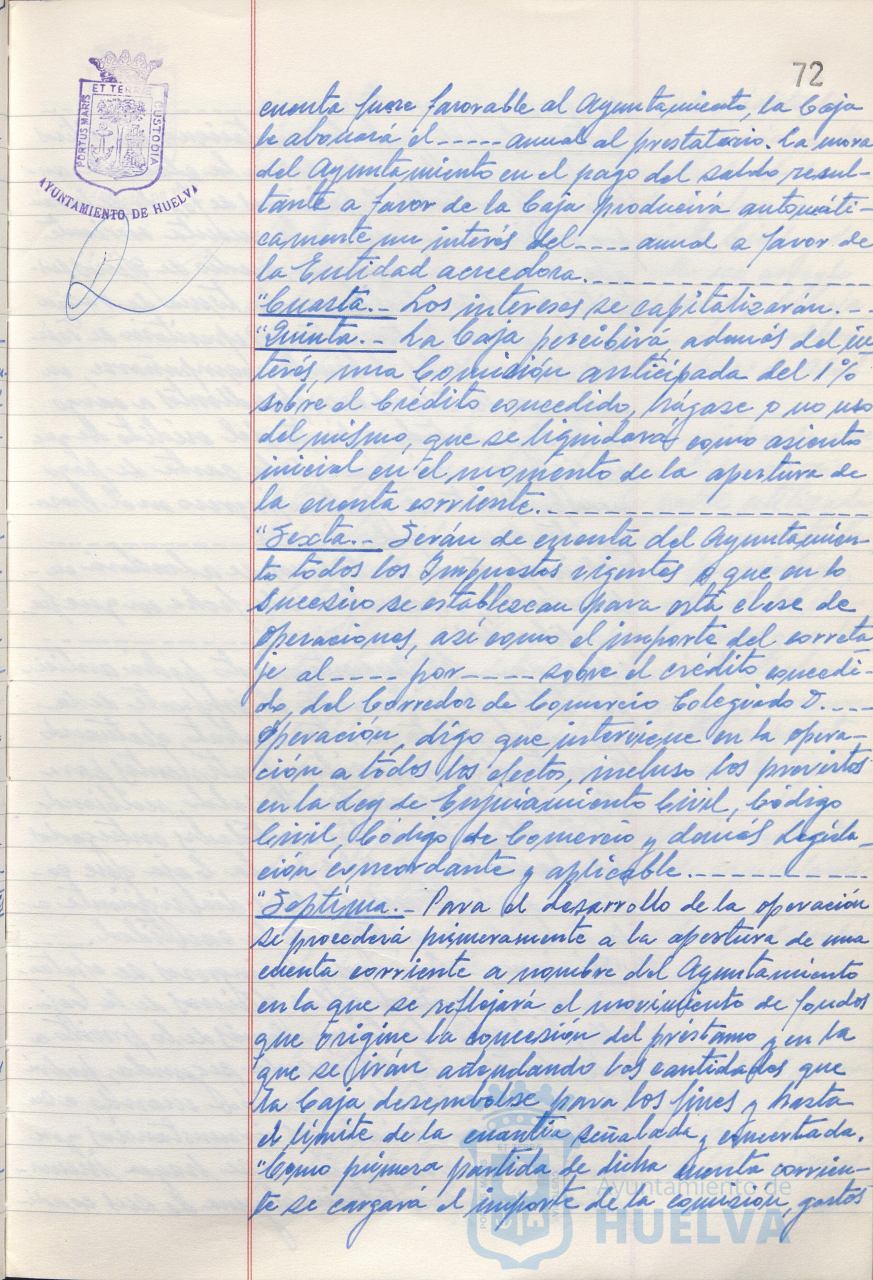 72
PORTUS MARIS ET TERRAE CUSTODIA
AYUNTAMIENTO DE HUELVA
cuenta fuere favorable al Ayuntamiento, la Caja
le abonará el ----- anual al prestatario. La mora
del Ayuntamiento en el pago del saldo resul-
tante a favor de la Caja producirá automáti-
camente un interés del ---- anual a favor de
la Entidad acreedora.
"Cuarta.- Los intereses se capitalizarán.--
"Quinta.- La Caja percibirá, además del in
terés, una Comisión anticipada del 1%
sobre el Crédito concedido, hágase o no uso
del mismo, que se liquidará como asiento
inicial en el momento de la apertura de
la cuenta corriente.
"Sexta.- Serán de cuenta del Ayuntamien-
to todos los Impuestos vigentes o que en lo
sucesivo se establezcan para esta clase de
operaciones, así como el importe del correta
je al ---- por ----- sobre el crédito concedi-
do, del Corredor de Comercio Colegiado D. ----
operación, digo que interviene en la opera-
ción a todos los efectos, incluso los previstos
en la Ley de Enjuiciamiento Civil, Código
Civil, Código de Comercio y demás Legisla-
ción concordante y aplicable.
"Septima.- Para el desarrollo de la operación
se procederá primeramente a la apertura de una
cuenta corriente a nombre del Ayuntamiento
en la que se reflejará el movimiento de fondos
que origine la concesión del préstamo y en la
que se irán adeudando las cantidades que
la Caja desembolse para los fines y hasta
el límite de la cuantía señalada y concertada.
"Como primera partida de dicha cuenta corrien-
te se cargará el importe de la comisión, gastos
Ayuntamiento de
HUELVA